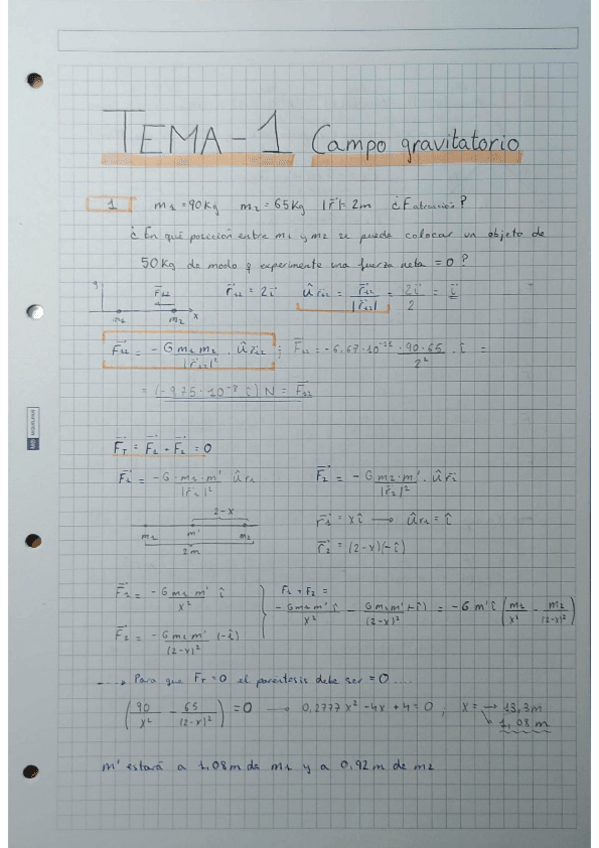 TEMA - 1 Campo gravitatorio
1 m₁ = 90Kg m₂ = 65Kg |r⃗| = 2m ¿F atracción?
¿En qué posición entre m₁ y m₂ se puede colocar un objeto de
50Kg de modo q experimente una fuerza neta = 0?
y r⃗₁₂ m₁ m₂ x r⃗₁₂ = 2i⃗ û r₁₂ = r⃗₁₂ / |r⃗₁₂| = 2i⃗ / 2 = i⃗
F⃗₁₂ = - G m₁ m₂ / |r⃗₁₂|² · û r₁₂ ; F⃗₁₂ = - 6,67·10⁻¹¹ · 90·65 / 2² · î =
= (-9,75·10⁻⁸ î) N = F⃗₁₂
F⃗T = F⃗₁ + F⃗₂ = 0
F⃗₁ = - G · m₁ · m' / |r⃗₁|² û r₁ F⃗₂ = - G m₂ · m' / |r⃗₂|² · û r₂
2-x
m₁ m' m₂
2m
r⃗₁ = xî → û r₁ = î
r⃗₂ = (2-x)(-î)
F⃗₁ = - G m₁ m' / x² î
F⃗₂ = - G m₂ m' / (2-x)² (-î)
F₁ + F₂ =
- G m₁ m' î / x² - G m₂ m' (-î) / (2-x)² = - G m' î (m₁ / x² - m₂ / (2-x)²)
---→ Para que FT = 0 el paréntesis debe ser = 0 ....
(90 / x² - 65 / (2-x)²) = 0 → 0,2777x² - 4x + 4 = 0 ; x = → 13,3m
→ 1,08 m
m' estará a 1,08m de m₁ y a 0,92m de m₂